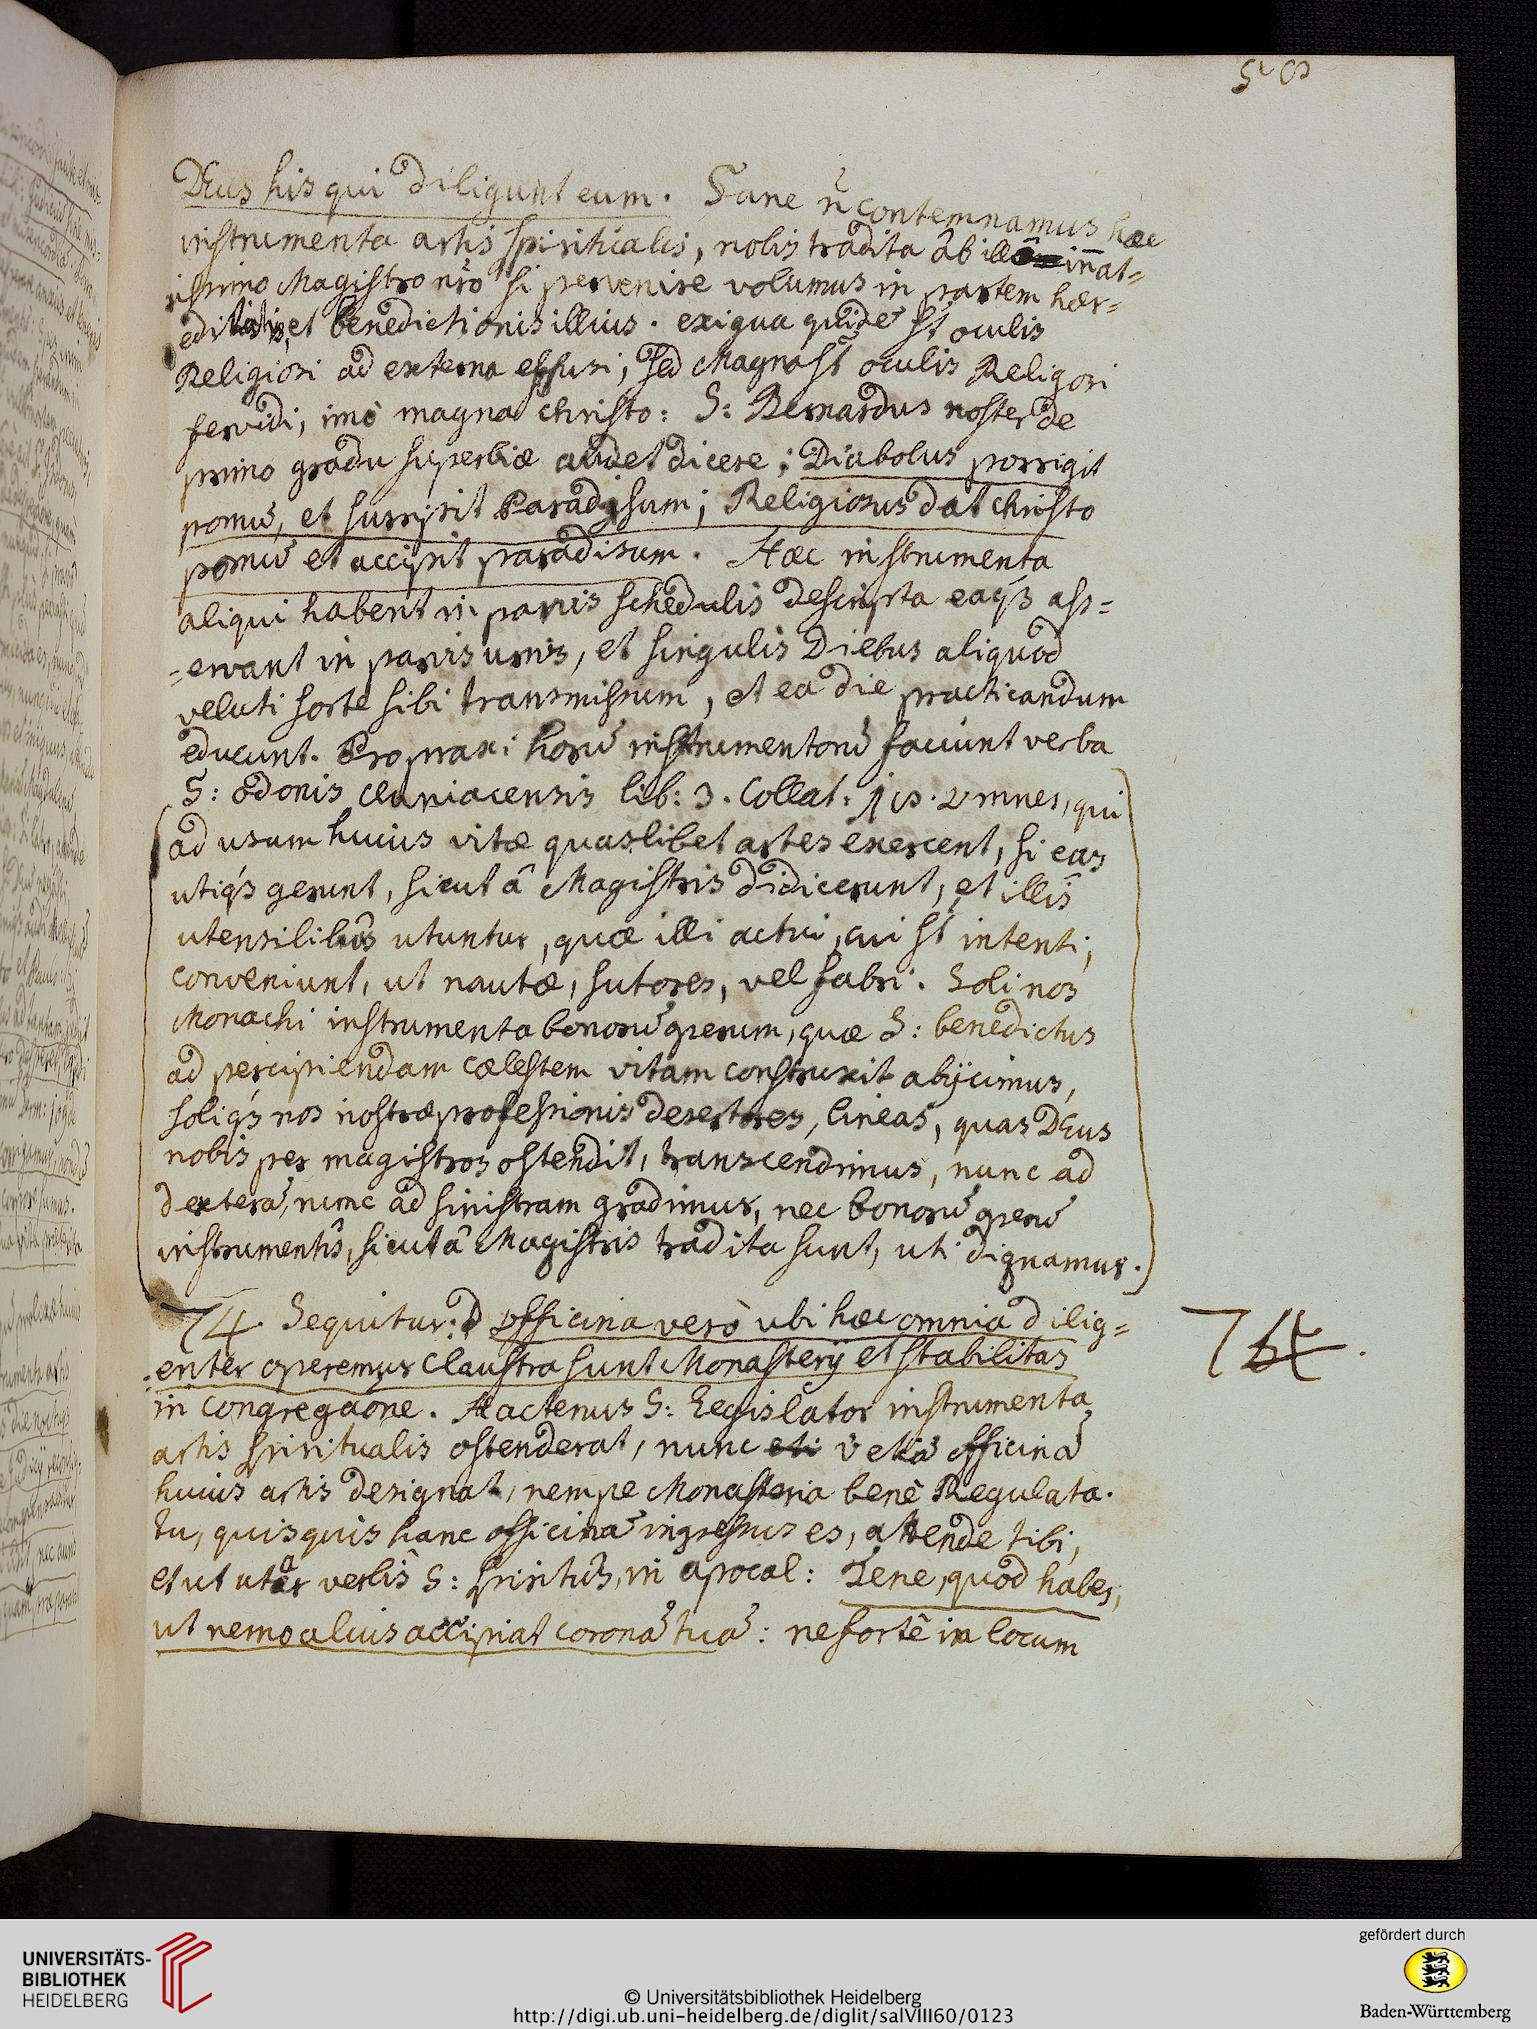 58
DEus his qui diligunt eum. Sane n̄ contemnamus hæc
instrumenta artis spiritualis, nobis tradita âb illūinat=
issimo Magistro nr̄o si pervenire volumus in partem hær=
editatis, et benedictionis illius. exigua quidē st̄ oculis
Religiosi ad externa effusi, sed Magna st̄ oculis Religiosi
fervidi, imò magna Christo: S: Bernardus noster de
primo gradu superbiæ audet dicere; Diabolus porrigit
pomū, et surripit Paradisum; Religiosus dat Christo
pomū et accipit paradisum. Hæc instrumenta
aliqui habent in parvis schedulis descripta eaq́3 ass=
=ervant in parvis urnis, et singulis Diebus aliquod
veluti sorte sibi transmissum, et ea die practicandum
educunt. Pro praxi horū instrumentorū faciunt verba
S: odonis cluniacensis lib: 3. Collat: omnes, qui
ad usum huius vitæ quaslibet artes exercent, si eas
utiq́3 gerunt, sicut â Magistris didicerunt, et illis
utensilibus utuntur, quæ illi actui, cui st̄ intenti,
conveniunt, ut nautæ, sutores, vel fabri. Soli nos
Monachi instrumenta bonorū operum, quæ S: benedictus
ad percipiendam cælestem vitam construxit abijcimus,
soliq́3 nos nostræ professionis desertores, lineas, quas DEus
nobis per magistros ostendit, transcendimus, nunc ad
dexterā, nunc ad sinistram gradimur, nec bonorū operū
instrumentis, sicut â Magistris tradita sunt, uti dignamur.
74. Sequitur: officina verò ubi hæc omnia dilig=
=enter operemur claustra sunt Monasterij et stabilitas
in congregaōne. Hactenus S: Legislator instrumenta
artis spiritualis ostenderat, nunc eti v̄ etiā officinā
huius artis designat, nempe Monasteria benè Regulata.
tu, quisquis hanc officinā ingressus es, attende tibi,
et ut utar verbis S: spiritûs, in apocal: Tene, quod habes,
ut nemo alius accipiat coronā tuā: ne fortè in locum
74.
UNIVERSITÄTS-
BIBLIOTHEK
HEIDELBERG
© Universitätsbibliothek Heidelberg
http://digi.ub.uni-heidelberg.de/diglit/salVIII60/0123
gefördert durch
Baden-Württemberg